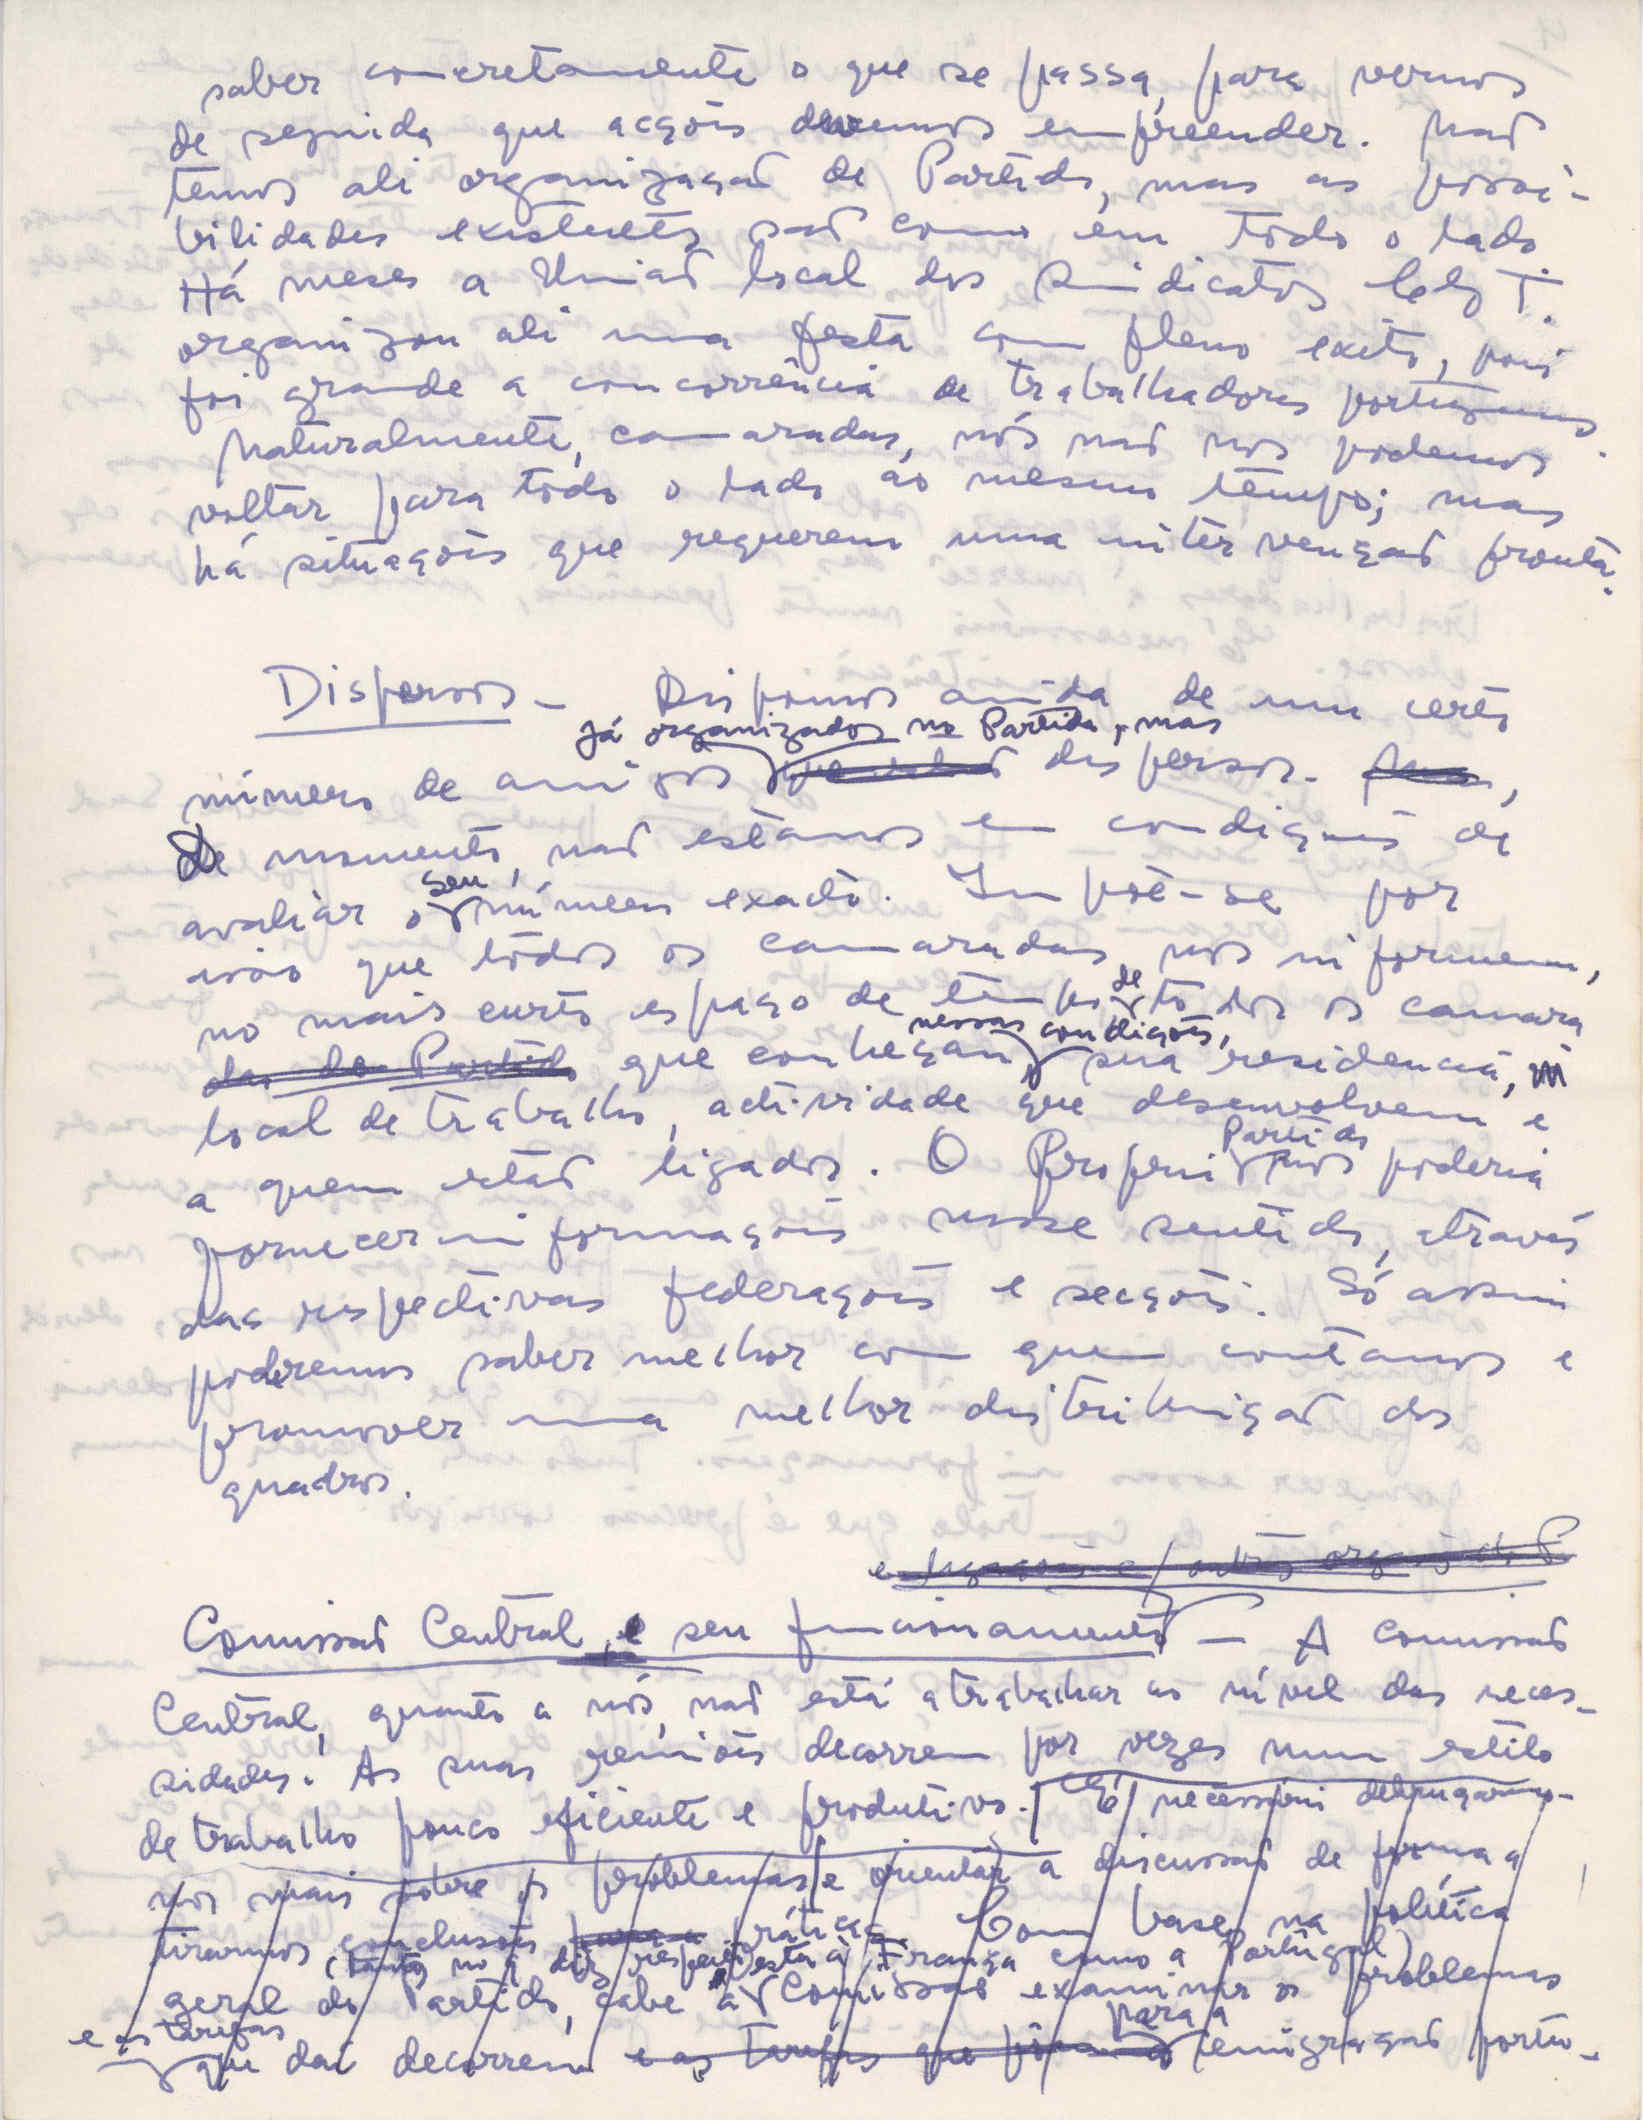 saber concretamente o que se passa, para vermos
de seguida que acções devemos empreender. Não
temos ali organização de Partido, mas as possi-
bilidades existentes são como em todo o lado
Há meses a União local dos Sindicatos C.G.T.
organizou ali uma festa com pleno exito, pois
foi grande a concorrência de trabalhadores portugueses.
Naturalmente, camaradas, nós não nos podemos
voltar para todo o lado ao mesmo tempo; mas
há situações que requerem uma intervenção pronta.
Dispersos - Dispomos ainda de um certo
já organizados no Partido, mas
número de amigos dispersos.
De momento, não estamos em condições de
seu
avaliar o número exacto. Impõe-se por
isso que todos os camaradas nos informem,
de
no mais curto espaço de tempo todos os camara
nessas condições,
das do Partido que conheçam sua residencia,
local de trabalho, actividade que desenvolvem e
Partido
a quem estão ligados. O Proprio nos poderia
fornecer informações nesse sentido, através
das respectivas federações e secções. Só assim
poderemos saber melhor com quem contamos e
promover uma melhor distribuição dos
quadros.
e ligações c/ outros orga do P.
Comissão Central, e seu funcionamento - A comissão
Central, quanto a nós, não está a trabalhar ao nível das neces-
sidades. As suas reuniões decorrem por vezes num estilo
de trabalho pouco eficiente e produtivo. É necessário debruçarmo-
nos mais sobre os problemas e orientar a discussão de forma a
tirarmos conclusões para a prática. Com base na política
(tanto no q diz respeito a França como a Portugal)
geral do Partido, cabe a esta Comissão examinar os problemas
e as tarefas para a
que daí decorrem e as tarefas que emigração portu-